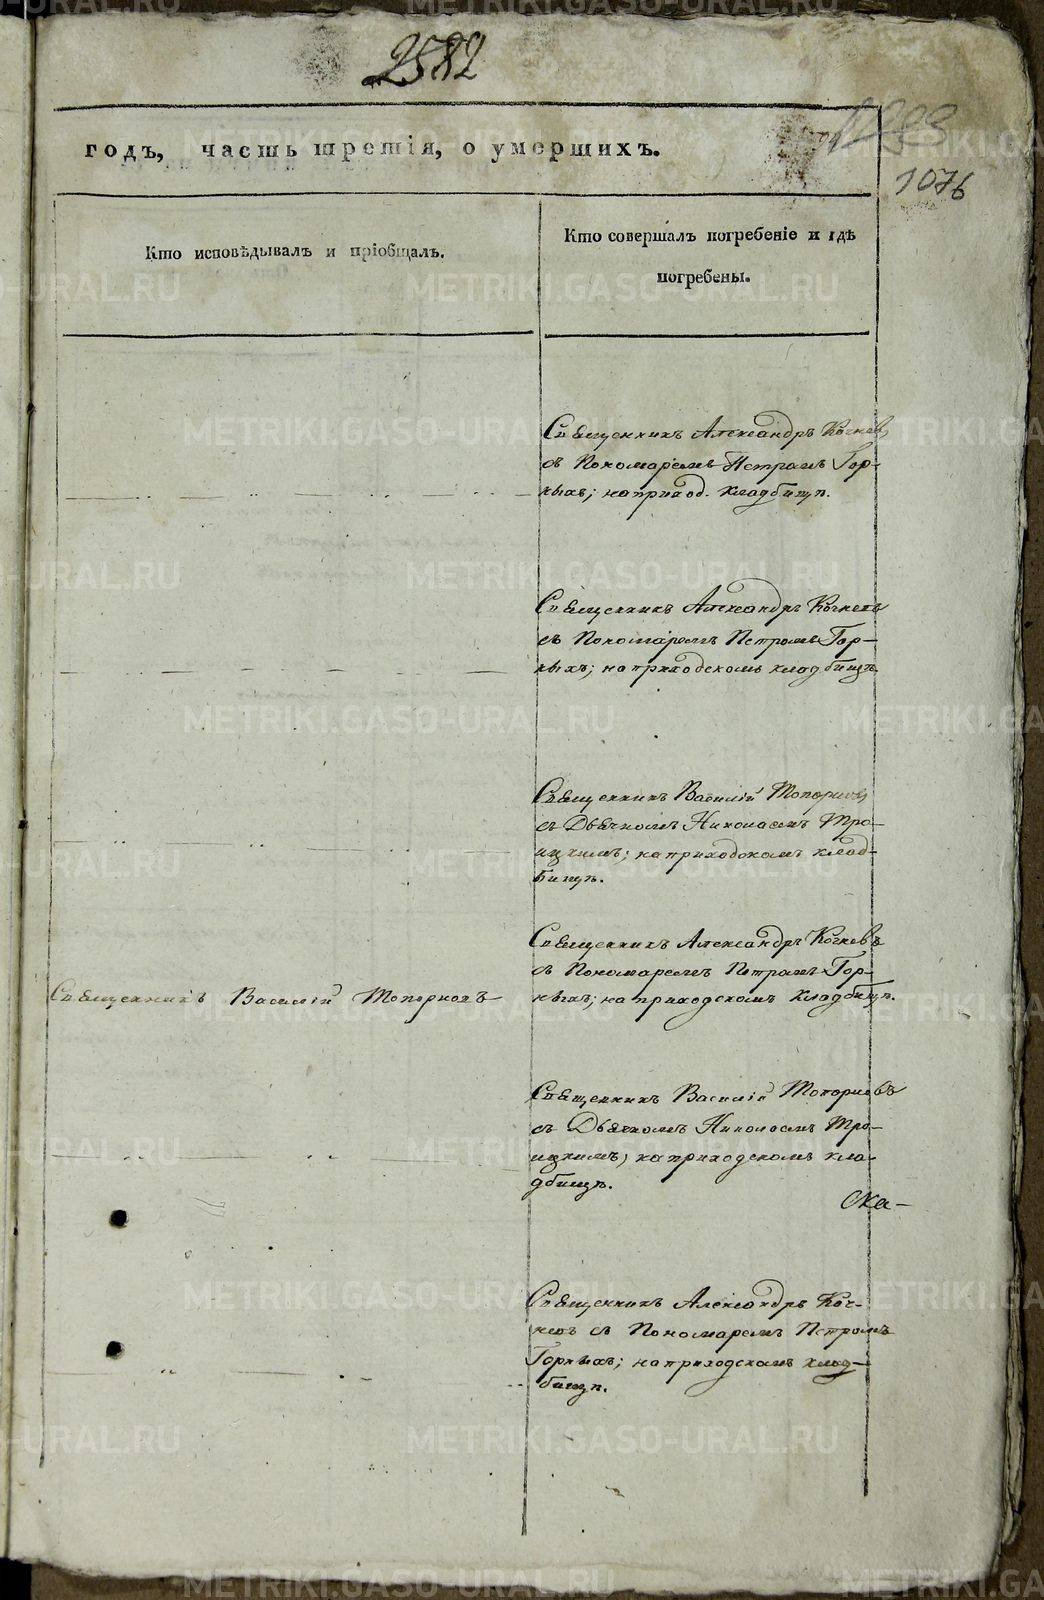 2582
годъ, часть третія, о умершихъ.
1076
Кто исповѣдывалъ и пріобщалъ.
Кто совершалъ погребеніе и гдѣ
погребены.
Священникъ Александръ Кочнев
съ Пономаремъ Петромъ Гор-
ныхъ; на приход. кладбищѣ.
Священникъ Александръ Кочневъ
съ Пономаремъ Петромъ Гор-
ныхъ; на приходскомъ кладбищѣ.
Священникъ Василій Топорков
съ Дьячкомъ Николаемъ Тро-
ицкимъ; на приходскомъ клад-
бищѣ.
Священникъ Александръ Кочневъ
съ Пономаремъ Петромъ Гор-
ныхъ; на приходскомъ кладбищѣ.
Священникъ Василій Топорковъ
Священникъ Василій Топорковъ
съ Дьячкомъ Николаемъ Тро-
ицкимъ; на приходскомъ кла-
дбищѣ.
Ска-
Священникъ Александръ Коч-
невъ съ Пономаремъ Петромъ
Горныхъ; на приходскомъ клад-
бищѣ.
METRIKI.GASO-URAL.RU